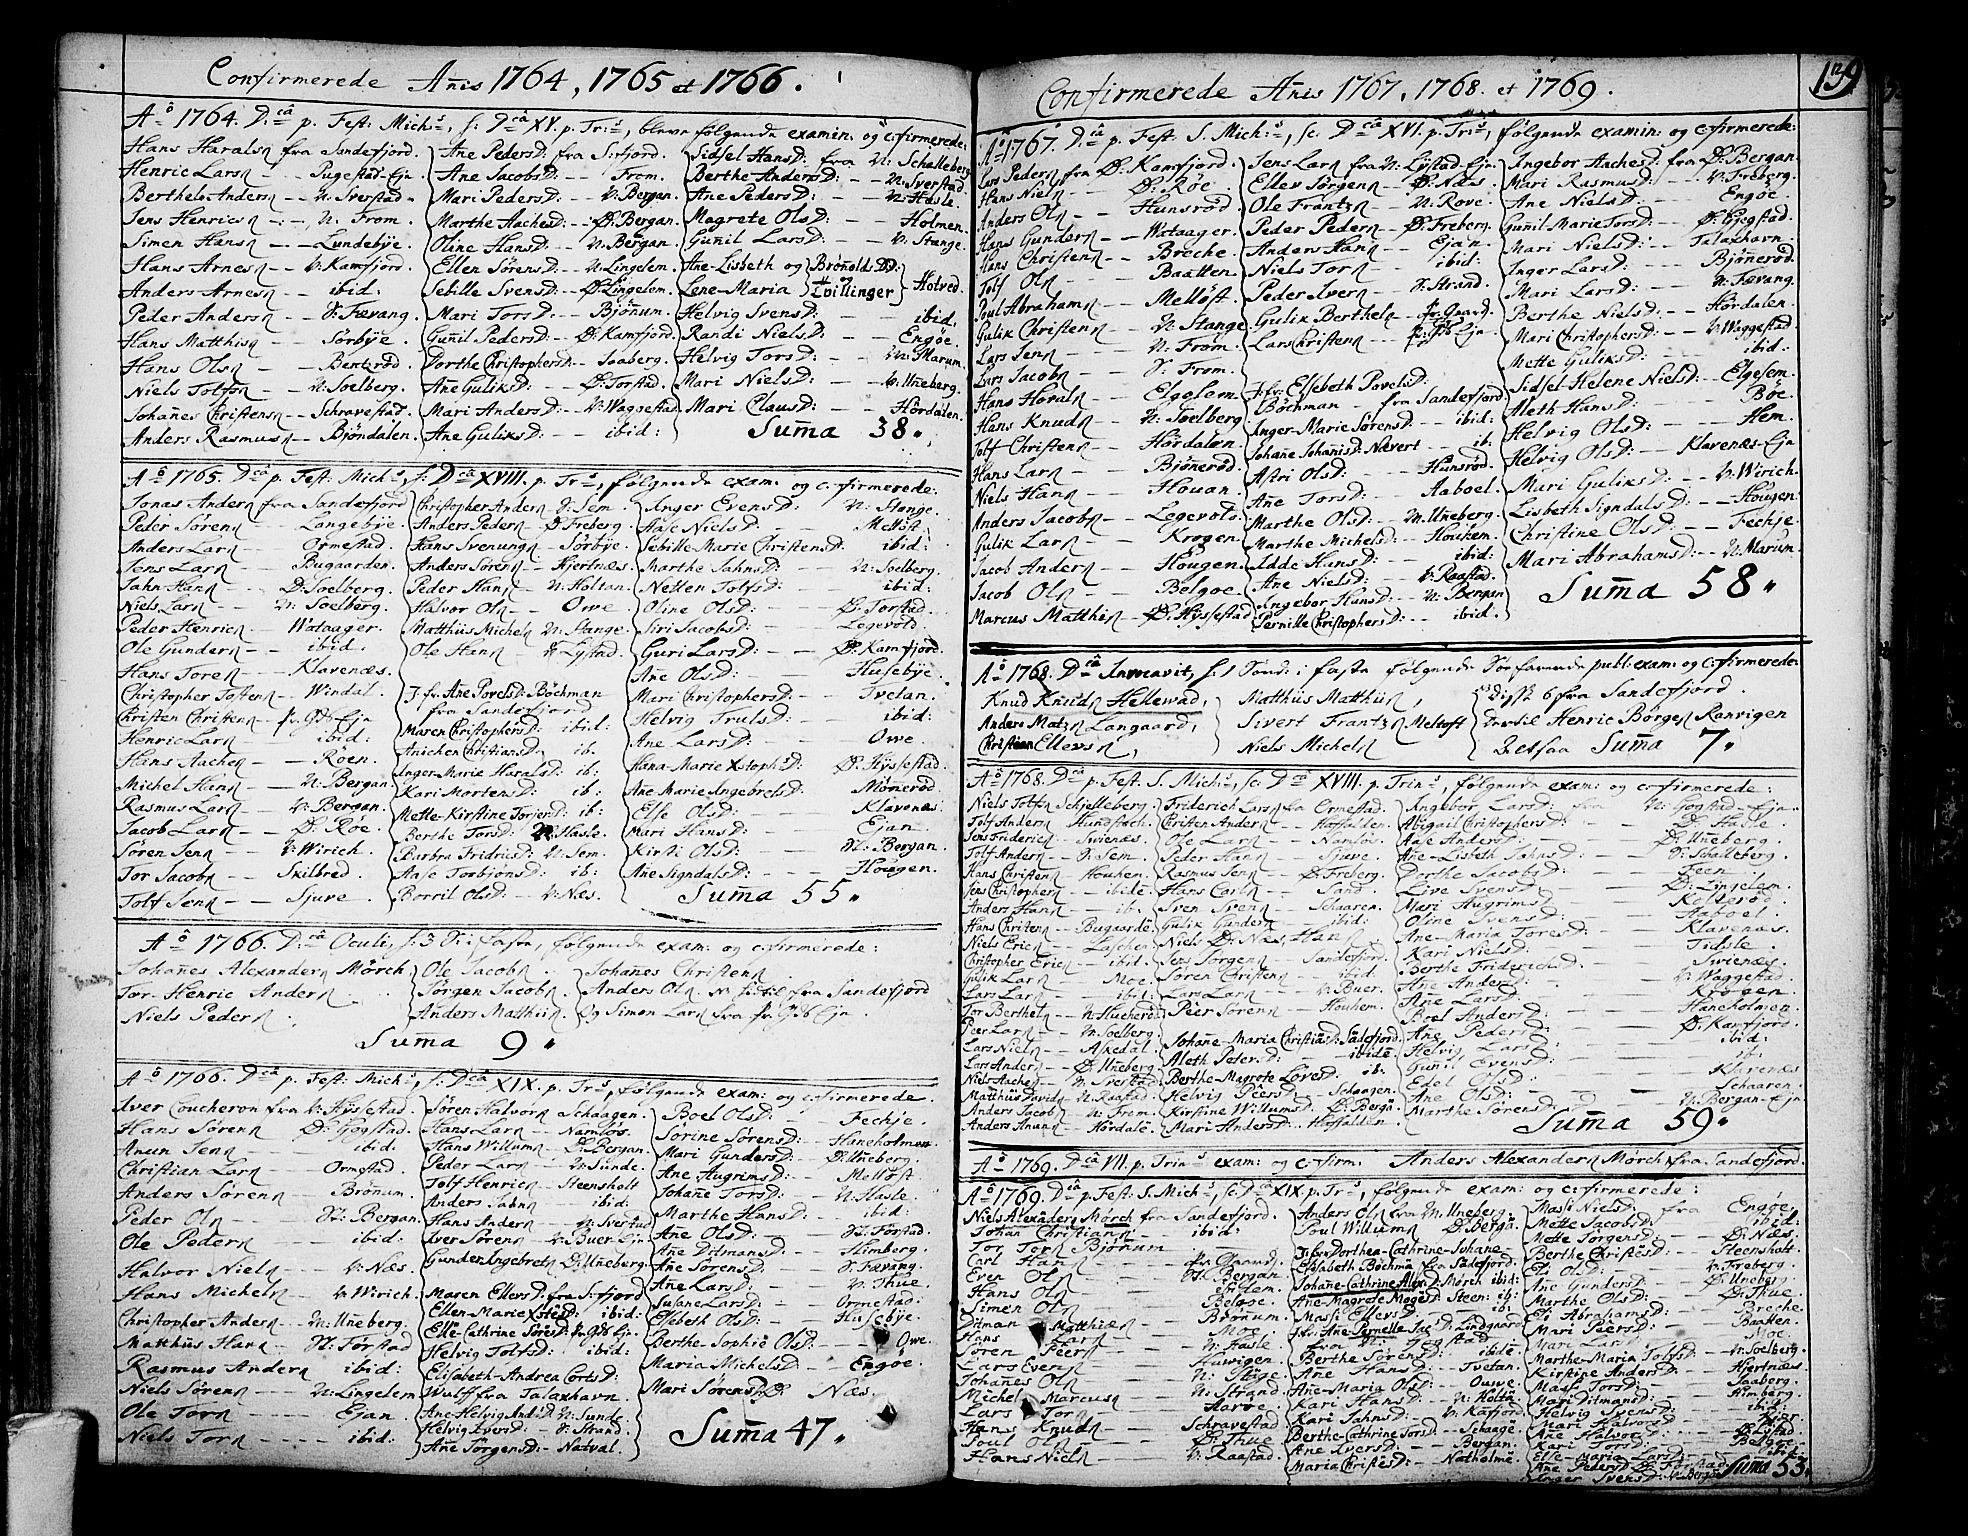 Confirmerede Añis 1764, 1765 et 1766.
Aº 1764. D:câ p. Fest: Mich:s, s: Dcâ XV. p. Tr:s, bleve følgende examin: og cfirmerede:
Hans Haralsn fra Sandefjord.
Henric Larsn -- Pugestad-Eje
Berthel Andersn -- N: Sverstad
Jens Henricsn -- N: From.
Simen Hansn -- Lundebye.
Hans Arnesn -- V: Kamfjord.
Anders Arnesn -- ibid:
Peder Andersn -- S: Fævang.
Hans Matthisn -- Sörbye.
Hans Olsn -- Bentzröd
Niels Tolfsn -- N: Soelberg.
Johañes Christensn -- Schravestad.
Anders Rasmusn -- Bjöndalen.
Ane Pedersd: fra S:fjord.
Ane Jacobsd: -- From.
Mari Pedersd: -- V: Bergan.
Marthe Aachesd: -- Ø: Bergan.
Oline Hansd: -- N: Bergan.
Ellen Sörensd: -- N: Lingelem.
Sebille Svensd: -- Ø: Lingelem.
Mari Torsd: -- Bjönum.
Guñil Pedersd: -- Ø: Kamfjord.
Dorthe Christophersd: -- Saaberg.
Ane Guliksd: -- Ø: Torstad.
Mari Andersd: -- V: Waggestad.
Ane Guliksd: -- ibid:
Sidsel Hansd: fra N: Schalleberg
Berthe Andersd: -- N: Sverstad
Ane Pedersd: -- N: Hasle.
Magrete Olsd: -- Holmen.
Guñil Larsd: -- V: Stange.
Ane-Lisbeth og Lene-Maria Broñolds DD: Tvillinger Hotved.
Helvig Svensd: -- ibid.
Randi Nielsd: -- Engöe.
Helvig Torsd: -- N: Marum.
Mari Nielsd: -- V: Uñeberg.
Mari Clausd: -- Hördalen.
Suma 38.
Aº 1765. Dcâ p. Fest: Mich:s, s: Dcâ XVIII. p. Tr:s, følgende exam: og cfirmerede:
Jonas Andersn fra Sandefjord
Peder Sörensn -- Langebye.
Anders Larsn -- Ormestad.
Jens Larsn -- Bugaarden.
Jahn Hansn -- Ø: Soelberg.
Niels Larsn -- N: Soelberg.
Peder Henricsn -- Wataager.
Ole Gundersn -- ibid.
Hans Toresn -- Klavenæs.
Christopher Tostensn -- Windal.
Christen Christensn -- fr. Gds Eje
Henric Larsn -- ibid:
Hans Aachesn -- Röen.
Michel Hansn -- N: Bergan.
Rasmus Larsn -- V: Bergan.
Jacob Larsn -- Ø: Röe.
Sören Jensn -- V: Wirich.
Tor Jacobsn -- Skilbred.
Tolf Jensn -- Sjuve.
Christopher Andersn -- V: Sem.
Anders Pedersn -- Ø: Freberg.
Hans Svenungsn -- Sörbye.
Anders Sörensn -- Hjertnæs.
Peder Hansn -- N: Holtan.
Halvor Olsn -- Owe.
Matthüs Michelsn -- N: Stange.
Ole Hansn -- V: Lystad.
J.fr. Ane Povelsd: Böchman
fra Sandefjord
Maren Christophersd: ibid:
Anichen Christiansd: ib.
Inger-Marie Haralsd: ib:
Kari Mortensd: ib:
Mette-Kirstine Torjersd: ib:
Berthe Torsd: N: Hasle.
Barbra Fridricsd: N: Sem.
Aase Torbjönsd: ib:
Borril Olsd: -- V: Næs.
Inger Evensd: -- N: Stange.
Aase Nielsd: -- Mellöst.
Sebille Marie Christensd: ibid:
Marthe Jahnsd: -- N: Soelberg.
Netten Tolfsd: -- ibid:
Oline Olsd: -- Ø: Torstad.
Siri Jacobsd: -- Legevold.
Guri Larsd: -- Ø: Kamfjord.
Ane Olsd: -- Husebye.
Mari Christophersd: -- Tvetan.
Helvig Trulsd: -- ibid:
Ane Larsd: -- Owe.
Hana-Marie Xstophsd: -- Ø: Hyssestad.
Ane Marie Angebretsd: -- Möneröd.
Else Olsd: -- Klavenæs.
Mari Hansd: -- Ejan.
Kirsti Olsd: -- N: Bergan.
Ane Signdalsd: -- Hougen.
Suma 55.
Aº 1766. D:câ Oculi, s: 3 S: i Fasten, følgende exam: og cfirmerede:
Johañes Alexandersn Mörch
Tor Henric Andersn
Niels Pedersn
Ole Jacobsn
Jörgen Jacobsn
Anders Matthisn
Johañes Christensn
Anders Olsn fra Sandefjord
Og Simon Larsn fra fr. Gds Eje
Suma 9.
Aº 1766. Dcâ p. Fest: Mich:s, s: Dcâ XIX. p. Tr:s, følgende exam: og cfirmerede.
Iver Coucheron fra V: Hyssestad.
Hans Sörensn -- Ø: Gogstad.
Anun Jensn -- ibid:
Christian Larsn -- Ormestad.
Anders Sörensn -- Brönum.
Peder Olsn -- N: Bergan.
Ole Pedersn -- ibid:
Halvor Nielsn -- V: Næs.
Hans Michelsn -- V: Wirich.
Christopher Andersn -- N: Uñeberg.
Matthüs Hansn -- N: Forstad
Rasmus Andersn -- ibid:
Niels Sörensn -- N: Lingelem
Ole Torsn -- Ejan.
Niels Torsn -- ibid:
Sören Halvorsn -- Schaagen.
Hans Larsn -- Namlös.
Hans Willumsn -- Ø: Bergan.
Peder Larsn -- V: Sunde.
Tolf Henricsn -- Steensholt
Anders Jahnsn -- ibid:
Hans Andersn -- N: Sverstad
Iver Sörensn -- V: Buer Eje
Gunder Ingebretsn Ø: Uñeberg.
Maren Ellersd: fra S:fjord
Ellen-Marie Xstesd: ibid:
Elle-Cathrine Söresd: fr. Gds Eje
Helvig Tolfsd: ibid:
Elisabeth-Andrea Cortsd:
Wulff fra Talaxhavn.
Ane-Helvig Andsd: N: Sunde
Helvig Iversd: -- S: Strand.
Ane Jörgensd: -- Natval.
Boel Olsd: -- Fechje.
Sörine Sörensd: -- Haneholmen.
Mari Gundersd: -- Ø: Uñeberg.
Ane Augrimsd: -- Mellöst
Johañe Torsd: -- N: Hasle.
Marthe Hansd: -- ibid:
Ane Olsd: -- N: Forstad.
Ane Ditmansd: -- Himberg.
Ane Sörensd: -- S: Fævang.
Ane Larsd: -- V: Thue.
Susane Larsd: -- Ormestad.
Elsebeth Olsd: -- Husebye.
Berthe-Sophie Olsd: -- Owe.
Maria Michelsd: -- Engöe.
Mari Sörensd: Ø: Næs.
Suma 47.
139
Confirmerede Añis 1767, 1768 et 1769.
Aº 1767. Dcâ p. Fest. S. Mich:s, sc. Dcâ XVI. p. Tr:s, følgende examin: og cfirmerede:
Lars Pedersn fra Ø: Kamfjord.
Hans Nielsn -- Ø: Röe.
Anders Olsn -- Hunsröd.
Hans Gundersn -- Wataager.
Hans Christensn -- Breche.
Tolf Olsn -- Baatten.
Poul Abrahamsn -- Mellöst.
Gulik Christensn -- N: Stange
Lars Jensn -- N: From.
Lars Jacobsn -- S: From.
Hans Hovalsn -- Elgelem.
Hans Knudsn -- N: Soelberg
Tolf Christensn -- Hördalen.
Hans Larsn -- Bjöneröd.
Niels Hansn -- Houan.
Anders Jacobsn -- Legevold.
Gulik Larsn -- Krogen.
Jacob Andersn -- Hougen.
Jacob Olsn -- Belgoe.
Marcus Matthisn -- Ø: Hyssestad.
Jens Larsn fra N: Lystad-Eje.
Ellev Jörgensn -- Ø: Næs.
Ole Frantzn -- N: Rove.
Peder Pedersn -- Ø: Freberg.
Anders Hansn -- Ejan.
Niels Torsn -- ibid:
Peder Iversn -- S: Strand.
Gulik Berthelsn -- fr. Gaard.
Lars Christensn -- fr. Gds Eje.
J.fr. Elsebeth Povelsd:
Böchman -- fra Sandefjord
Inger-Marie Sörensd: -- ibid:
Johañe Johanisd: Nævert -- ib.
Astri Olsd: -- Hunsröd.
Ane Torsd: -- Aaboel.
Marthe Olsd: -- N: Uñeberg.
Marthe Michelsd: -- Houhem.
Idde Hansd: -- ibid:
Ane Nielsd: -- V: Raastad.
Ingebor Hansd: -- N: Bergan
Pernille Christophersd: -- ibid.
Ingebor Aachesd: fra Ø: Bergan.
Mari Rasmusd: -- V: Freberg.
Ane Nielsd: -- Engöe.
Guñil Marie Torsd: -- Ø: Gogstad.
Mari Nielsd: -- Talaxhavn.
Inger Larsd: -- Bjöneröd.
Mari Larsd: -- N: Fævang.
Berthe Nielsd: -- Hördalen.
Mari Christophersd: -- V: Waggestad.
Mette Guliksd: -- ibid:
Sidsel-Helene Nielsd: -- Elgesem.
Aleth Hansd: -- Böe.
Helvig Olsd: -- Hem.
Helvig Olsd: -- Klavenæs-Eje
Mari Guliksd: -- V: Wirich.
Lisbeth Signdalsd: -- Hougen.
Christine Olsd: -- Fechje.
Mari Abrahamsd: -- N: Marum.
Suma 58.
Aº 1768. Dcâ Invocavit, s: 1 Sönd: i faste følgende Söefarende publ: exam: og cfirmerede:
Knud Knudsn Hellewad,
Anders Matzn Langaard,
Christian Ellevsn,
Matthüs Matthisn,
Sivert Frantzn Meltoft
Niels Michelsn
Disse 6 fra Sandefjord.
Dertil Henric Börgesn Ranvigen
Detsaa Suma 7.
Aº 1768. Dcâ p. Fest. S. Mich:s, sc. Dcâ XVIII. p. Trin:s, følgende exam: og cfirmerede:
Niels Tolfsn Schjelleberg
Tolf Andersn Hundstoch.
Jens Fridericsn Svienæs.
Tolf Andersn -- V: Sem.
Hans Christensn Houhen.
Jens Christophersn -- ibidē.
Anders Hansn -- ib.
Hans Christensn -- Bugaarde.
Niels Ericsn -- Laschen
Christopher Ericsn -- ibid.
Gulik Larsn -- Moe.
Lars Larsn -- ibid:
Tor Berthelsn -- N: Hucheröd
Peer Larsn -- N: Soelberg.
Lars Nielsn -- Askedal.
Lars Andersn -- Ø: Uñeberg
Niels Aachesn -- N: Sverstad
Matthüs Davidsn -- N: Raastad
Anders Jacobsn -- N: From.
Anders Anunsn -- Hördalē.
Friderich Larsn fra Ormestad.
Christen Andersn -- Hasfalden.
Ole Larsn -- Namlös.
Peder Hansn -- Sjuve.
Rasmus Jensn -- Ø: Freberg.
Hans Carlsn -- Sand.
Sven Svensn -- Schaaren.
Gulik Gundersn -- ibid:
Jens Jörgensn -- Sandefjord.
Sören Christensn -- ibid.
Lars Larsn -- V: Buer.
Peer Sörensn -- Houhem.
Johañe-Maria Christiāsd: Sādefjord.
Aleth Petersd: -- ibidē.
Berthe-Magrete Lövesd: -- ib.
Helvig Peersd: -- Schaagen.
Kirstine Willumsd: -- Ø: Bergā.
Mari Andersd: -- Hasfaldēn.
Ingebor Larsd: fra N: Gogstad-Eje.
Abigail Christophersd: -- Ø: Hasle.
Aase Andersd: -- Ø: Uñeberg.
Ane-Lisbeth Jahnsd: -- N: Schalleberg.
Dorthe Jacobsd: -- Feen
Live Svensd: -- Ø: Lingelem.
Mari Augrimsd: -- Kolderöd.
Oline Svensd: -- Aaboel.
Ane-Maria Toresd: -- Klavenæs.
Kari Nielsd: -- Tidsle.
Berthe Fridericsd: -- Svienæs.
Ane Andersd: -- V: Waggestad.
Ane Larsd: -- Krogen
Boel Andersd: -- Haneholmen.
Ane Pedersd: -- Ø: Kamfjord.
Helvig Larsd: -- ibid:
Gunil Evensd: -- ib.
Edel Olsd: -- Klavenæs
Ane Olsd: -- Schaaren.
Marthe Sörensd: -- V: Bergan-Eje
Suma 59.
Aº 1769. Dcâ VII. p. Trin:s exam: og cfirm: Anders Alexandersn Mörch fra Sandefjord.
Aº 1769. Dcâ p. Fest: S. Mich:s, sc: Dcâ XIX. p. Tr:s, følgende exam: og cfirmerede:
Niels Alexāders̄n Mörch fra Sandefjord.
Johan Christiansn -- ibid:
Tor Torsn Bjönum
Carl Hansn -- fr. Gaard.
Even Olsn -- N: Bergan.
Hans Olsn
Simen Olsn -- Belgoe.
Ditman Matthisn -- Brönum.
Hans Larsn -- Moe.
Sören Peersn -- N: Hasle.
Lars Evensn -- Huwigen.
Johañes Olsn -- N: Stāge.
Michel Marcusn -- N: Strand.
Lars Torsn
Hans Knudsn -- Schravestad
Poul Olsn -- Ø: Thue.
Hans Nielsn -- V: Raastad.
Anders Olsn fra N: Uneberg.
Poul Willumsn -- Ø: Bergā.
J:fr Dorthea-Cathrine-Johane
Elisabeth Böchmā fra Sādefjord.
Johane-Cathrine Alexd: Mörch ibid:
Ane-Magrete Mogēsd: Steen: ib:
Mari Ellevsd: -- ib:
J.fr. Ane Pernelle Jacd: Lindgaard
fra N: Gogstad
Berthe Sörensd: -- ibidē
Ane Hansd: -- Tvetan.
Ane-Maria Olsd: -- Ouwe.
Kari Hansd: -- N: Holtā
Kari Jahnsd: -- V: Kāfjord.
Berthe-Cathrine Torsd: -- Schaagē.
Ane Iversd: -- Bergan.
Maria Christēsd: -- Natholmē.
Masse Nielsd: fra Engöe.
Mette Jacobsd: -- ibid:
Mette Jörgensd: -- Ø: Næs.
Berthe Christēsd: -- Steensholt.
Eli Olsd: -- V: Freberg.
Ane Gundersd: -- Ø: Uneberg.
Marthe Olsd: -- Ø: Thue.
Eli Abrahamsd: -- Breche.
Mari Peersd: -- Baatten.
Mari Larsd: -- Moe.
Marthe-Maria Tolfsd: -- N: Soelberg.
Kirstine Andersd: -- Hjertnæs.
Masse Torsd: -- Saaberg.
Mari Ditmansd: -- Himberg.
Helvig Svensd: -- ibid:
Mari Halvorsd:
Ane Halvorsd: -- Ø: Lystad.
Kari Torsd: -- Belgoe.
Elle-Maria Larsd: -- ibid:
Ane Pedersd: Ø: Forstad.
Inger Svensd: V: Bergan
Suma 53.